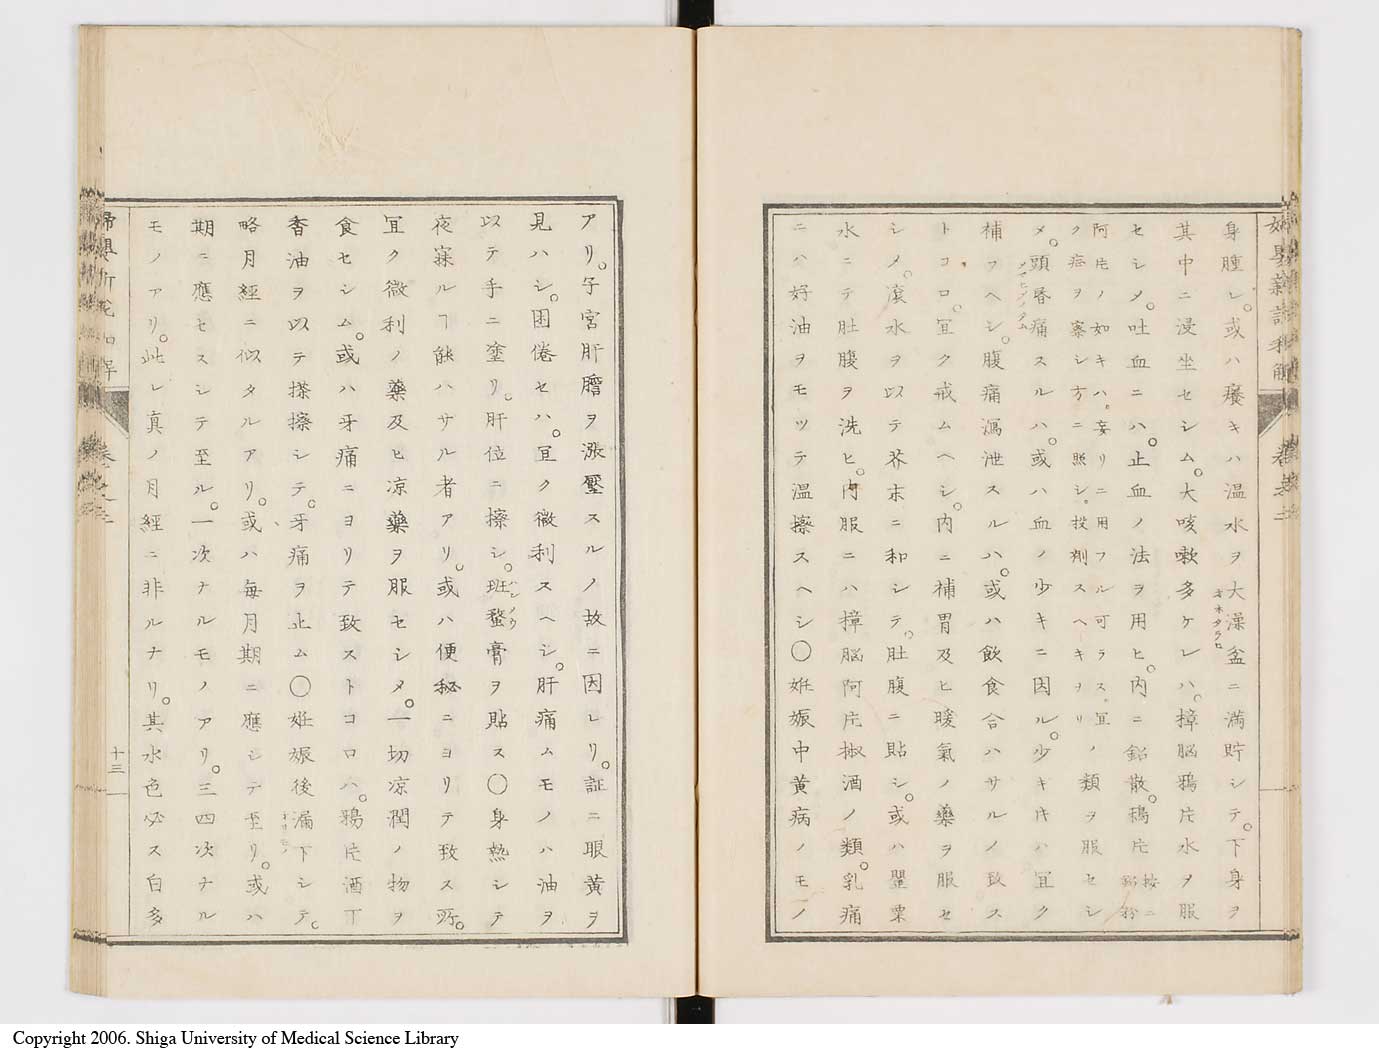 身腫レ。或ハ癢キハ温水ヲ大澡盆ニ満貯シテ。下身ヲ
オホタラヒ
其中ニ浸坐セシム。大咳嗽多ケレハ。樟脳鴉片水ヲ服
セシメ。吐血ニハ。止血ノ法ヲ用ヒ。内ニ鉛散。鴉片 按ニ鉛粉
阿片ノ如キハ。妄リニ用フル可ラス。宜
ク症ヲ察シ方ニ照シ。投剤スヘキヲリ
ノ類ヲ服セシ
メ。頭昏痛スルハ。或ハ血ノ少キニ因ル。少キ𬼀ハ宜ク
補フヘシ。腹痛瀉泄スルハ。或ハ飲食合ハサルノ致ス
トコロ。宜ク戒ムヘシ。内ニ補胃及ヒ暖氣ノ藥ヲ服セ
シメ。滾水ヲ以テ芥末ニ和シテ。肚腹ニ貼シ。或ハ罌粟
水ニテ肚腹ヲ洗ヒ。内服ニハ樟脳阿片椒酒ノ類。乳痛
ニハ好油ヲモツテ温擦スヘシ〇妊娠中黄病ノモノ
アリ。子宮肝膽ヲ漲壓スルノ故ニ因レリ。証ニ眼黄ヲ
見ハシ。困倦セハ。宜ク微利スヘシ。肝痛ムモノハ油ヲ
以テ手ニ塗リ。肝位ニ擦シ。斑蝥膏ヲ貼ス〇身熱シテ
ハンメウ
夜寐ルヿ能ハサル者アリ。或ハ便秘ニヨリテ致ス所。
宜ク微利ノ藥及ヒ凉藥ヲ服セシメ。一切凉潤ノ物ヲ
食セシム。或ハ牙痛ニヨリテ致ストコロハ。鴉片酒丁
香油ヲ以テ搽擦シテ。牙痛ヲ止ム〇妊娠後漏下シテ。
オリモノ
略月經ニ似タルアリ。或ハ毎月期ニ應シテ至リ。或ハ
期ニ應セスシテ至ル。一次ナルモノアリ。三四次ナル
モノアリ。此レ真ノ月經ニ非ルナリ。其水色必ス白多
十三
Copyright 2006. Shiga University of Medical Science Library